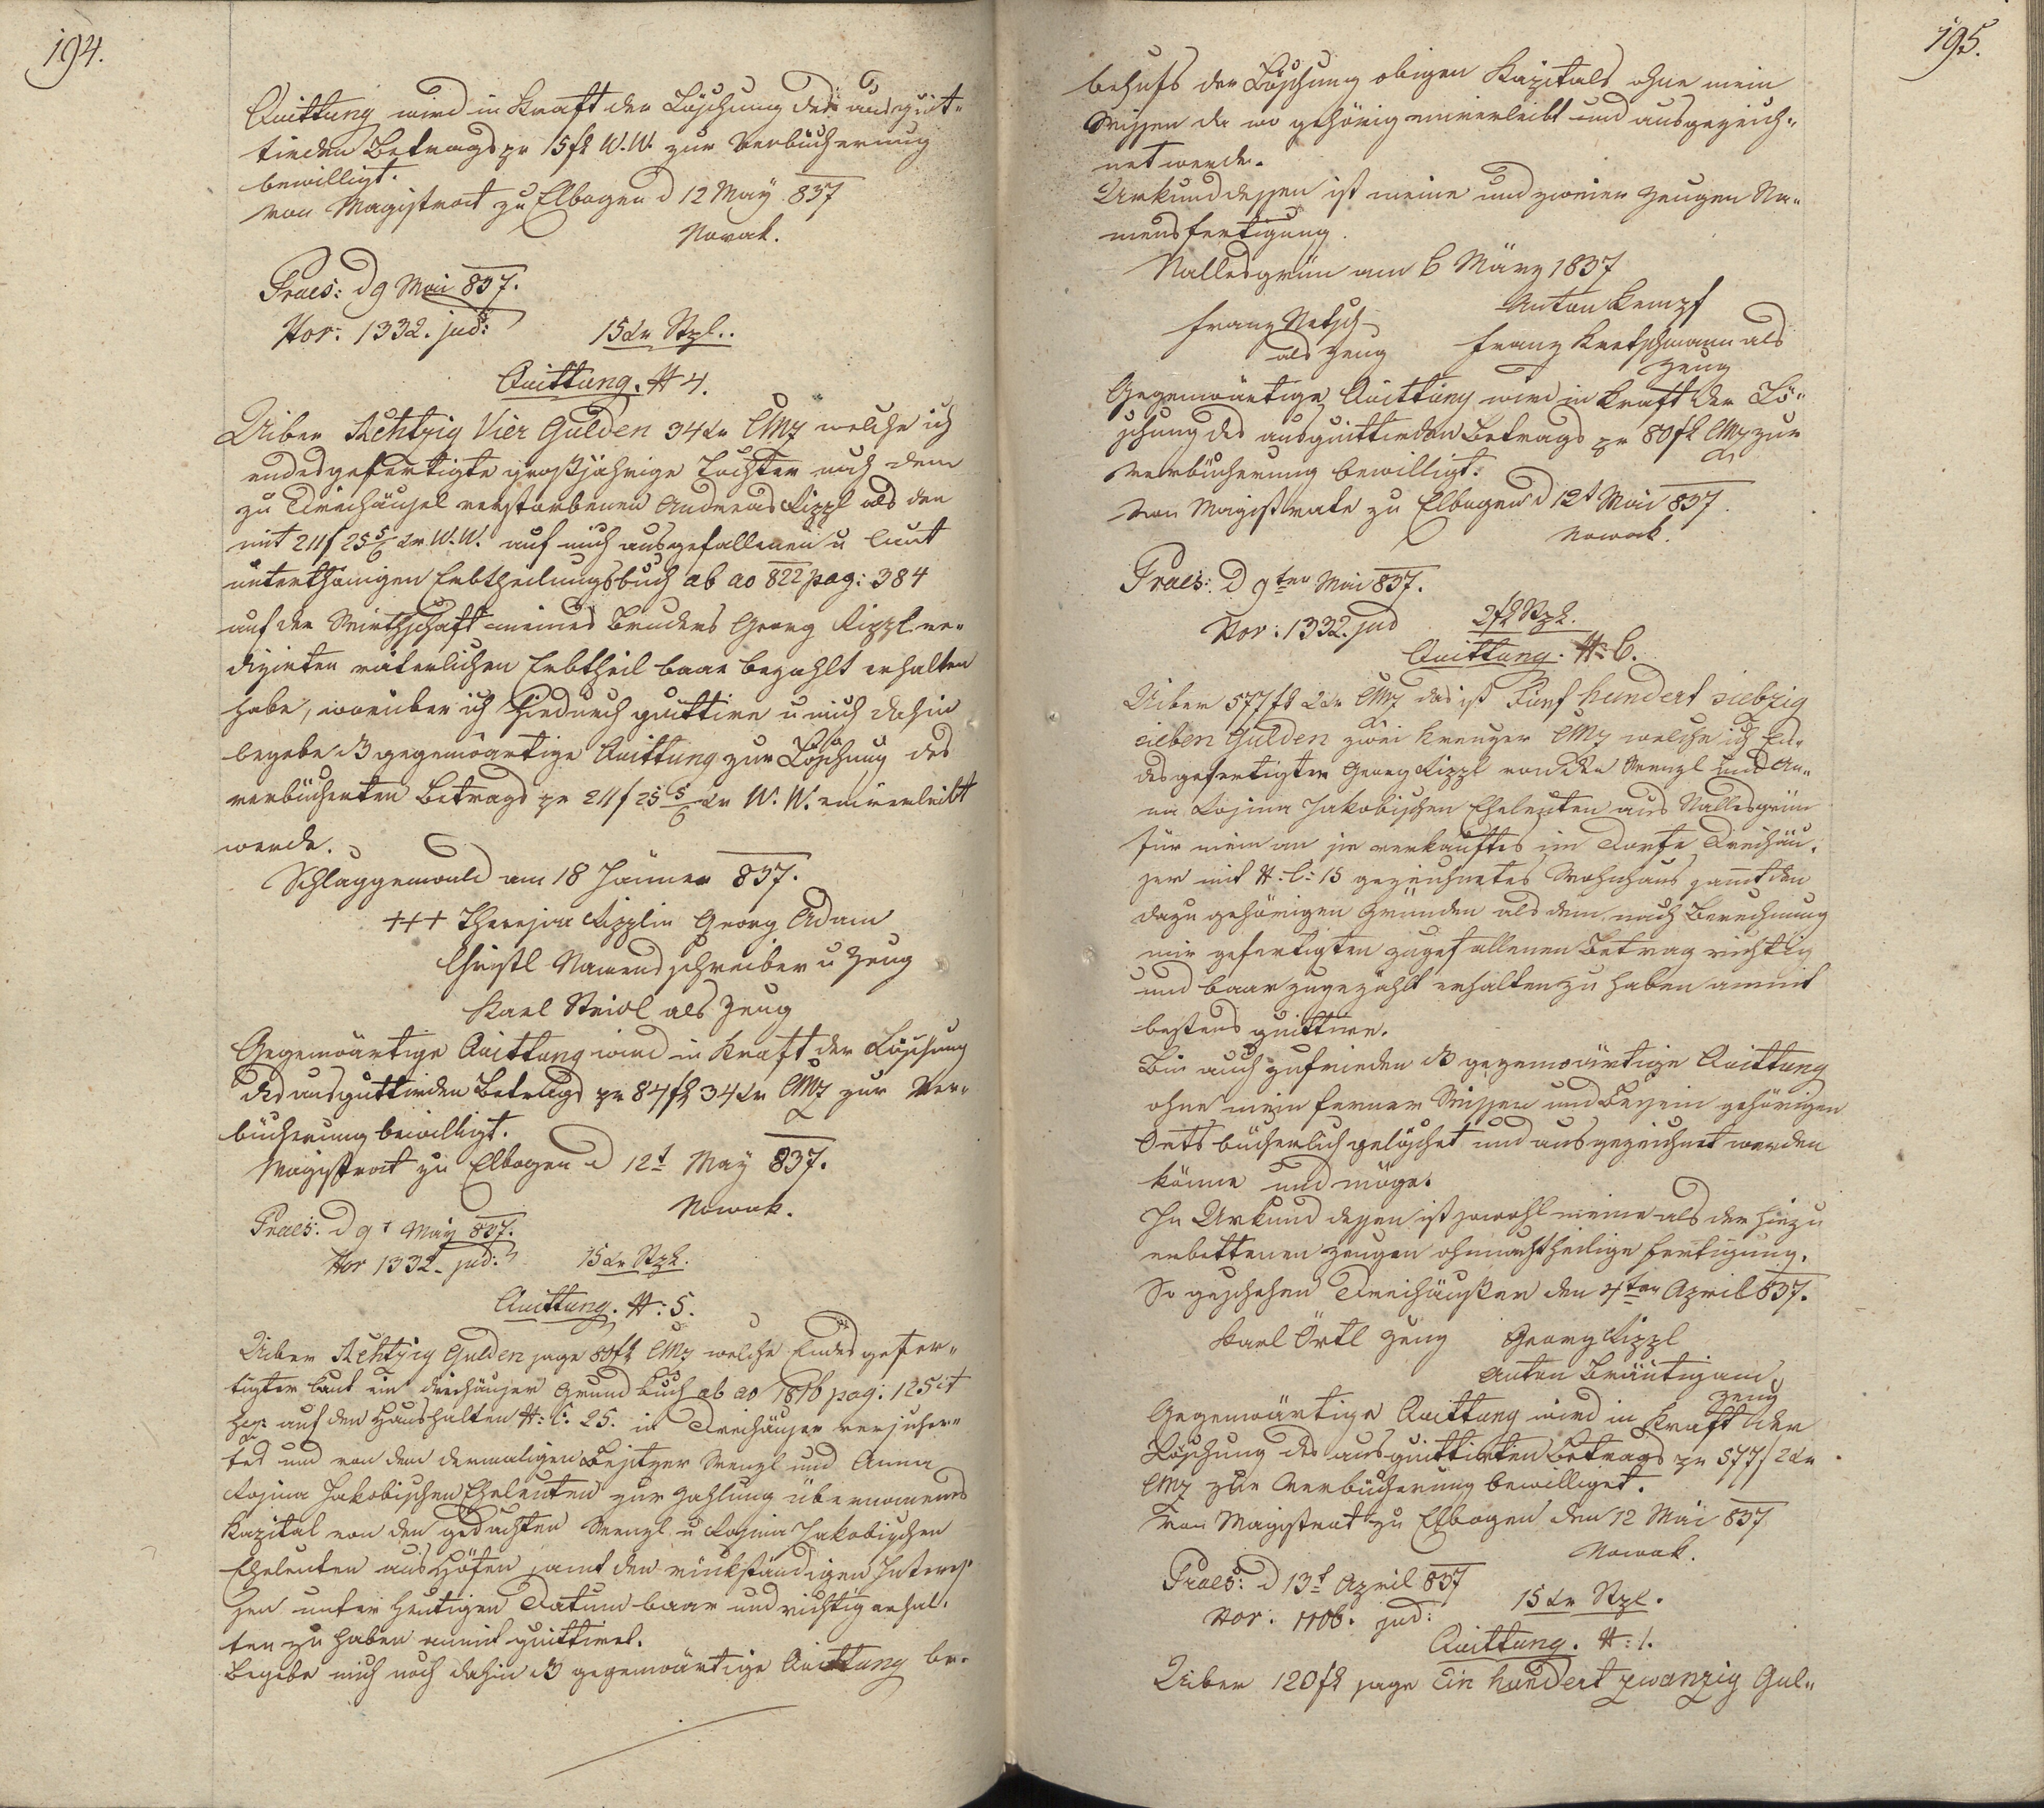 194.
Quittung wird in Kraft der Löschung des ausquit-
tirden Betrags pr 15 fl W. W. zur Verbücherung
bewilligt.
Von Magistrat zu Elbogen d 12 May 837
Nowak.
Praes: d 9 Mai 837.
Nor: 1332. jud:
15 kr Stpl..
Quittung. N 4.
Uiber Achtzig Vier Gulden 34 kr CMz welche ich
endesgefertigte großjährige Tochter nach dem
zu Dreihäusel verstorbenen Andreas Rippl als den
mit 211 f 25 5/6 kr W. W. auf mich ausgefallenen u laut
unterthänigen Erbtheilungsbuch ab ao 822 pag: 384
auf der Wirthschaft meines Bruders Georg Rippl ra-
dizirten väterlichen Erbtheil baar bezahlt erhalten
habe, worüber ich hiedurch quittire u mich dahin
begebe dß gegenwärtige Quittung zur Löschung des
verbücherten Betrags pr 211 f 25 5/6 kr W. W. einverleibt
werde.
Schlaggenwald am 18 Jänner 837.
+++ Theresia Ripplin Georg Adam
Christl Namensschreiber u Zeug
Karl Steidl als Zeug
Gegenwärtige Quittung wird in Kraft der Löschung
des ausquttirden Betrags pr 84 fl 34 kr CMz zur Ver-
bücherung bewilligt.
Magistrat zu Elbogen d 12t May 837.
Nowak.
Praes: d 9t May 837.
Nor 1332. jud:
15 kr Stpl.
Quittung. N: 5.
Uiber Achtzig Gulden sage 80 fl CMz welche Endesgefer-
tigter laut im dreihäuser Grundbuch ab ao 1816 pag: 125 it
auf den Haushalten N: C. 25. in Dreihäuser versicher-
tes und von dem dermaligen Besitzer Wenzl und Anna
Rosina Jakobischen Eheleuten zur Zahlung übernomenes
Kapital von den gedachten Wenzl u Rosina Jakobischen
Eheleuten aus Höfen samt den rückständigen Interes-
sen unter heutigen Datum baar und richtig erhal-
ten zu haben anmit quittiret.
Begebe mich noch dahin dß gegenwärtige Quittung be-
195.
behufs der Löschung obigen Kapitals ohne mein
Wissen da wo gehörig einverleibt und ausgezeich-
net werde.
Urkund dessen ist meine und zweier Zeugen Na-
mensfertigung.
Nallesgrün am 6 März 1837
Anton Kempf
Franz Netsch
als Zeug
Franz Kretschmann als
Zeug
Gegenwärtige Quittung wird in Kraft der Lö-
schung des ausquittirden Betrags pr 80 fl CMz zur
Verbücherung bewilligt.
Von Magistrate zu Elbogen d 12t Mai 837.
Nowak.
Praes: d 9ten Mai 837.
Nor: 1332. jud
2 fl Stpl.
Quittung. N: 6.
Uiber 577 fl 2 kr CMz das ist Fünf hundert siebzig
sieben Gulden zwei Kreuzer CMz welche ich En-
desgefertigter Georg Rippl von den Wenzl und An-
na Rosina Jakobischen Eheleuten aus Nallesgrün
für mein an sie verkauftes im Dorfe Dreihäu-
ser mit N. C: 15 gezeichnetes Wohnhaus samt den
dazu gehörigen Gründen als dem nach Berechnung
mir gefertigten zugefallenen Betrag richtig
und baar zugezählt erhalten zu haben anmit
bestens quittire.
Bin auch zufrieden dß gegenwärtige Quittung
ohne mein ferner Wissen und Beysein gehörigen
Orts bücherlich gelöschet und ausgezeichnet werden
könne und möge.
In Urkund dessen ist sowohl meine als der hiezu
erbettenen Zeugen ohnnachtheilige Fertigung.
So geschehen Dreihäußer den 4ten April 837.
Karl Örtl Zeug
Georg Rippl
Anton Bräutigam
Zeug
Gegenwärtige Quittung wird in Kraft der
Löschung des ausquittirten Betrags pr 577 f 2 kr
CMz zur Verbücherung bewilliget.
Von Magistrat zu Elbogen den 12 Mai 837
Nowak.
Praes: d 13t April 837
Nor: 1106. jud:
15 kr Stpl.
Quittung. N: 1.
Uiber 120 fl sage Ein hundert zwanzig Gul-